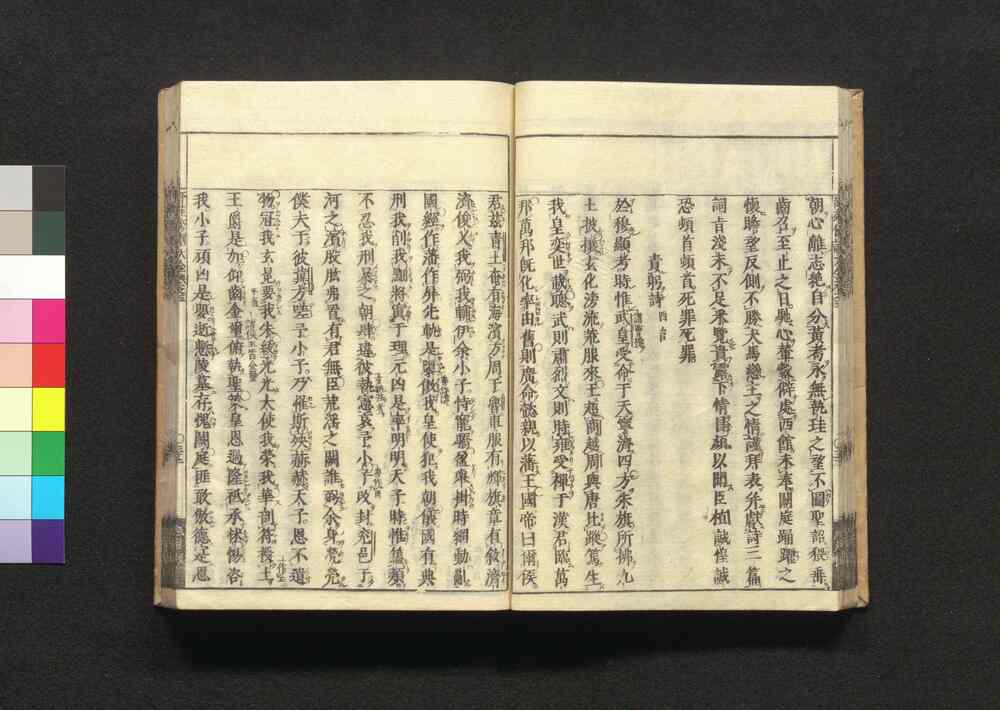 朝心離志絶自分黃耇永無執珪之望不圖聖詔猥垂
齒召至止之日馳心輦轂僻處西館未奉闕庭踊躍之
懷瞻望反側不勝犬馬戀主之情謹拜表并獻詩二篇
詞旨淺末不足采覽貴露下情冒顏以聞臣植誠惶誠
恐頓首頓首死罪死罪
責躬詩四言
於穆顯考時惟武皇受命于天寧濟四方朱旗所拂九
土披攘玄化滂流荒服來王超商越周與唐比蹤篤生
我皇奕世載聰武則肅烈文則時雍受禪于漢君臨萬
邦萬邦旣化率由舊則廣命懿親以藩王國帝曰爾侯
君茲青土奄有海濱方周于魯車服有輝旗章有敘濟
濟俊乂我弼我輔伊余小子恃寵驕盈舉挂時網動亂
國經作藩作屛先軌是隳傲我皇使犯我朝儀國有典
刑我削我黜將寘于理元凶是率明明天子時惟篤類
不忍我刑暴之朝肆違彼執憲哀予小子改封兗邑于
河之濱股肱弗置有君無臣荒淫之闕誰弼余身煢煢
僕夫于彼冀方嗟予小子乃罹斯殃赫赫天子恩不遺
物冠我玄冕要我朱紱光光大使我榮我華剖符授土
王爵是加仰齒金璽俯執聖策皇恩過隆祗承怵惕咨
我小子頑凶是嬰逝慙陵墓存愧闕庭匪敢傲德寔恩